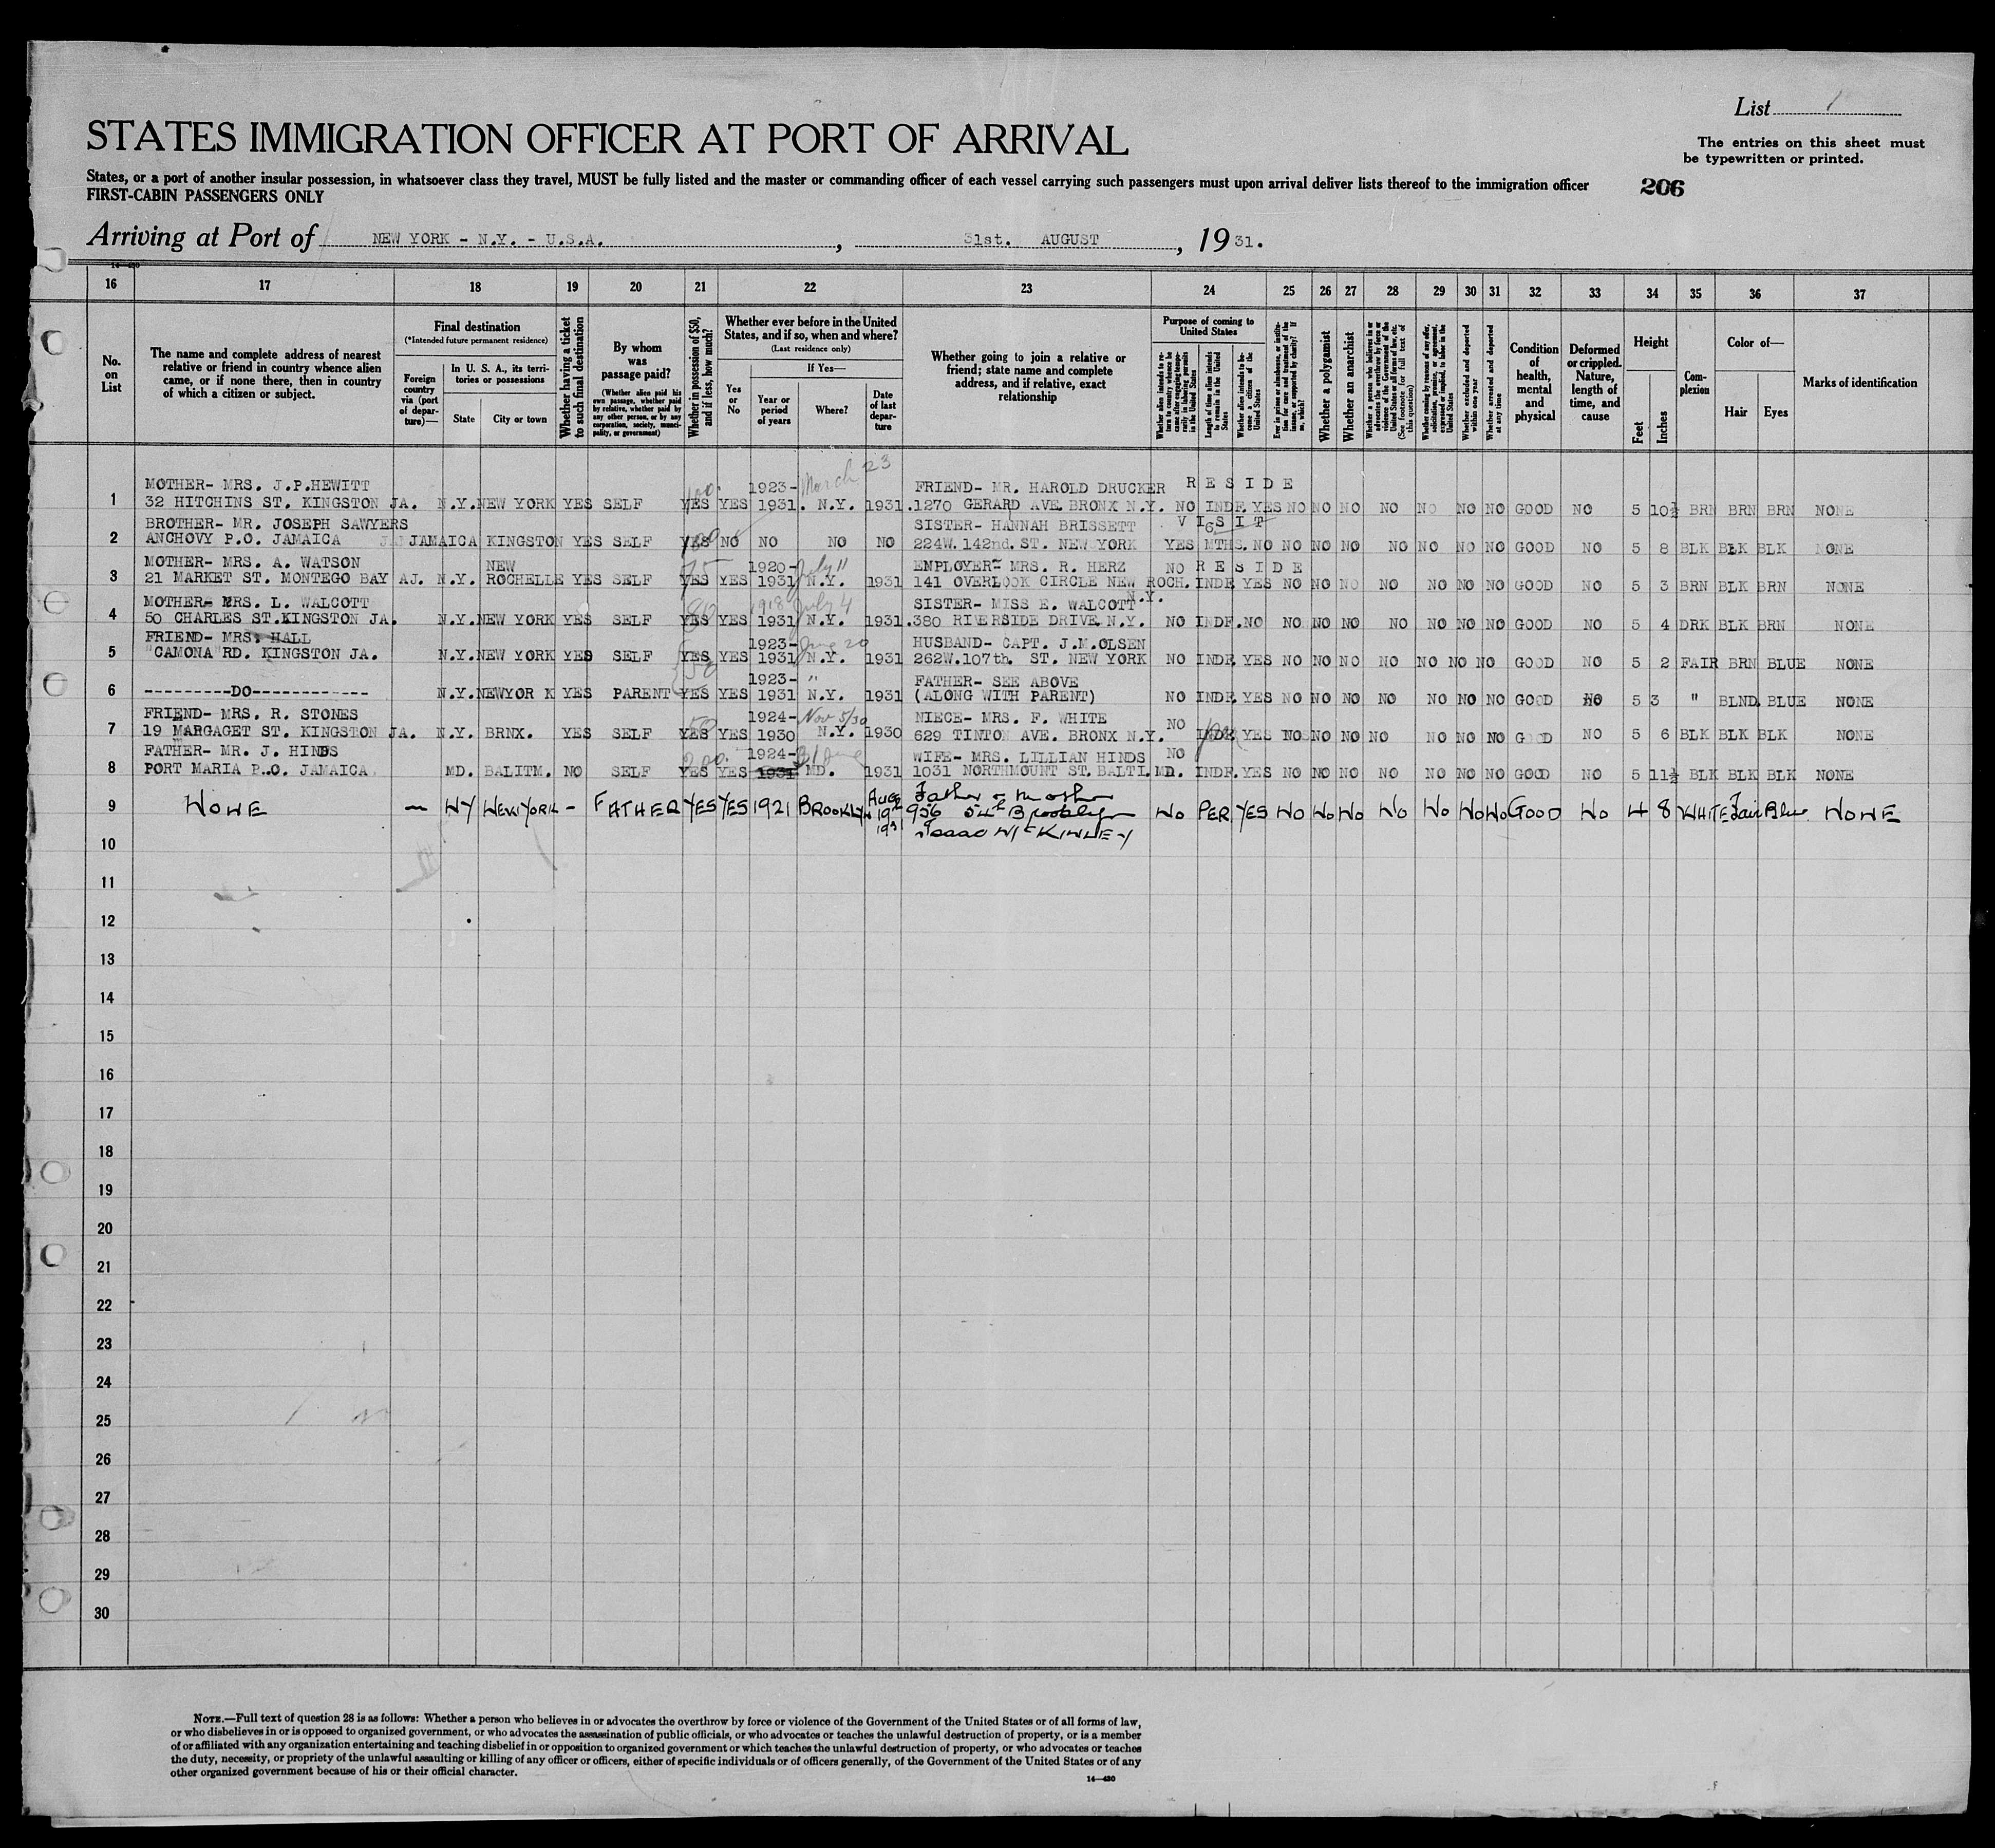 List 1
STATES IMMIGRATION OFFICER AT PORT OF ARRIVAL
The entries on this sheet must
be typewritten or printed.
States, or a port of another insular possession, in whatsoever class they travel, MUST be fully listed and the master or commanding officer of each vessel carrying such passengers must upon arrival deliver lists thereof to the immigration officer
FIRST-CABIN PASSENGERS ONLY
206
Arriving at Port of NEW YORK - N.Y. - U.S.A. , 31st. AUGUST , 19 31.
16 17 18 19 20 21 22 23 24 25 26 27 28 29 30 31 32 33 34 35 36 37
No. on List
The name and complete address of nearest relative or friend in country whence alien came, or if none there, then in country of which a citizen or subject.
Final destination
(*Intended future permanent residence)
Foreign country via (port of departure)—
In U. S. A., its territories or possessions
State
City or town
Whether having a ticket to such final destination
By whom was passage paid?
(Whether alien paid his own passage, whether paid by relative, whether paid by any other person, or by any corporation, society, municipality, or government)
Whether in possession of $50, and if less, how much?
Whether ever before in the United States, and if so, when and where?
(Last residence only)
Yes or No
If Yes—
Year or period of years
Where?
Date of last departure
Whether going to join a relative or friend; state name and complete address, and if relative, exact relationship
Purpose of coming to United States
Length of time alien intends to remain in the United States
Whether alien intends to become a citizen of the United States
Whether a polygamist
Whether an anarchist
Whether excluded and deported within one year
Whether arrested and deported at any time
Condition of health, mental and physical
Deformed or crippled. Nature, length of time, and cause
Height
Feet
Inches
Complexion
Color of—
Hair
Eyes
Marks of identification
MOTHER- MRS. J.P.HEWITT 1923- March 23 FRIEND- MR. HAROLD DRUCKER R E S I D E
1 32 HITCHINS ST. KINGSTON JA. N.Y. NEW YORK YES SELF YES YES 1931. N.Y. 1931. 1270 GERARD AVE. BRONX N.Y. NO INDF. YES NO NO NO NO NO NO NO GOOD NO 5 10½ BRN BRN BRN NONE
BROTHER- MR. JOSEPH SAWYERS SISTER- HANNAH BRISSETT V I S I T
2 ANCHOVY P.O. JAMAICA JAMAICA KINGSTON YES SELF YES NO NO NO NO 224W. 142nd. ST. NEW YORK YES 6 MTHS. NO NO NO NO NO NO NO NO GOOD NO 5 8 BLK BLK BLK NONE
MOTHER- MRS. A. WATSON NEW 75 1920- July 11 EMPLOYER- MRS. R. HERZ NO R E S I D E
3 21 MARKET ST. MONTEGO BAY AJ. N.Y. ROCHELLE YES SELF YES YES 1931 N.Y. 1931 141 OVERLOOK CIRCLE NEW ROCH. INDF. YES NO NO NO NO NO NO NO GOOD NO 5 3 BRN BLK BRN NONE
N.Y.
MOTHER- MRS. L. WALCOTT 80 1918 July 4 SISTER- MISS E. WALCOTT
4 50 CHARLES ST. KINGSTON JA. N.Y. NEW YORK YES SELF YES YES 1931 N.Y. 1931. 380 RIVERSIDE DRIVE, N.Y. NO INDF. NO NO NO NO NO NO NO NO GOOD NO 5 4 DRK BLK BRN NONE
FRIEND- MRS. HALL 1923- June 20 HUSBAND- CAPT. J.M.OLSEN
5 "CAMONA" RD. KINGSTON JA. N.Y. NEW YORK YES SELF YES YES 1931 N.Y. 1931 262W.107th. ST. NEW YORK NO INDF. YES NO NO NO NO NO NO NO GOOD NO 5 2 FAIR BRN BLUE NONE
50 1923- " FATHER- SEE ABOVE
6 ---------DO------------ N.Y. NEWYOR K YES PARENT YES YES 1931 N.Y. 1931 (ALONG WITH PARENT) NO INDF. YES NO NO NO NO NO NO NO GOOD NO 5 3 " BLND. BLUE NONE
FRIEND- MRS. R. STONES 50 1924- Nov 5/30 NIECE- MRS. F. WHITE NO
7 19 MARGAGET ST. KINGSTON JA. N.Y. BRNX. YES SELF YES YES 1930 N.Y. 1930 629 TINTON AVE. BRONX N.Y. INDF. YES NO NO NO NO NO NO NO GOOD NO 5 6 BLK BLK BLK NONE
FATHER- MR. J. HINDS 200. 1924- June WIFE- MRS. LILLIAN HINDS NO
8 PORT MARIA P.O. JAMAICA MD. BALITM. NO SELF YES YES 1931 MD. 1931 1031 NORTHMOUNT ST. BALTI. MD. INDF. YES NO NO NO NO NO NO NO GOOD NO 5 11½ BLK BLK BLK NONE
9 NONE — NY NEW YORK - FATHER YES YES 1921 BROOKLYN Aug 19 1931 Father & Mother No PER YES No No No No No No No GOOD No 4 8 WHITE Fair Blue NONE
956 54th Brooklyn
Isaac McKINLEY
10
11
12
13
14
15
16
17
18
19
20
21
22
23
24
25
26
27
28
29
30
NOTE.—Full text of question 28 is as follows: Whether a person who believes in or advocates the overthrow by force or violence of the Government of the United States or of all forms of law,
or who disbelieves in or is opposed to organized government, or who advocates the assassination of public officials, or who advocates or teaches the unlawful destruction of property, or is a member
of or affiliated with any organization entertaining and teaching disbelief in or opposition to organized government or which teaches the unlawful destruction of property, or who advocates or teaches
the duty, necessity, or propriety of the unlawful assaulting or killing of any officer or officers, either of specific individuals or of officers generally, of the Government of the United States or of any
other organized government because of his or their official character.
14—430